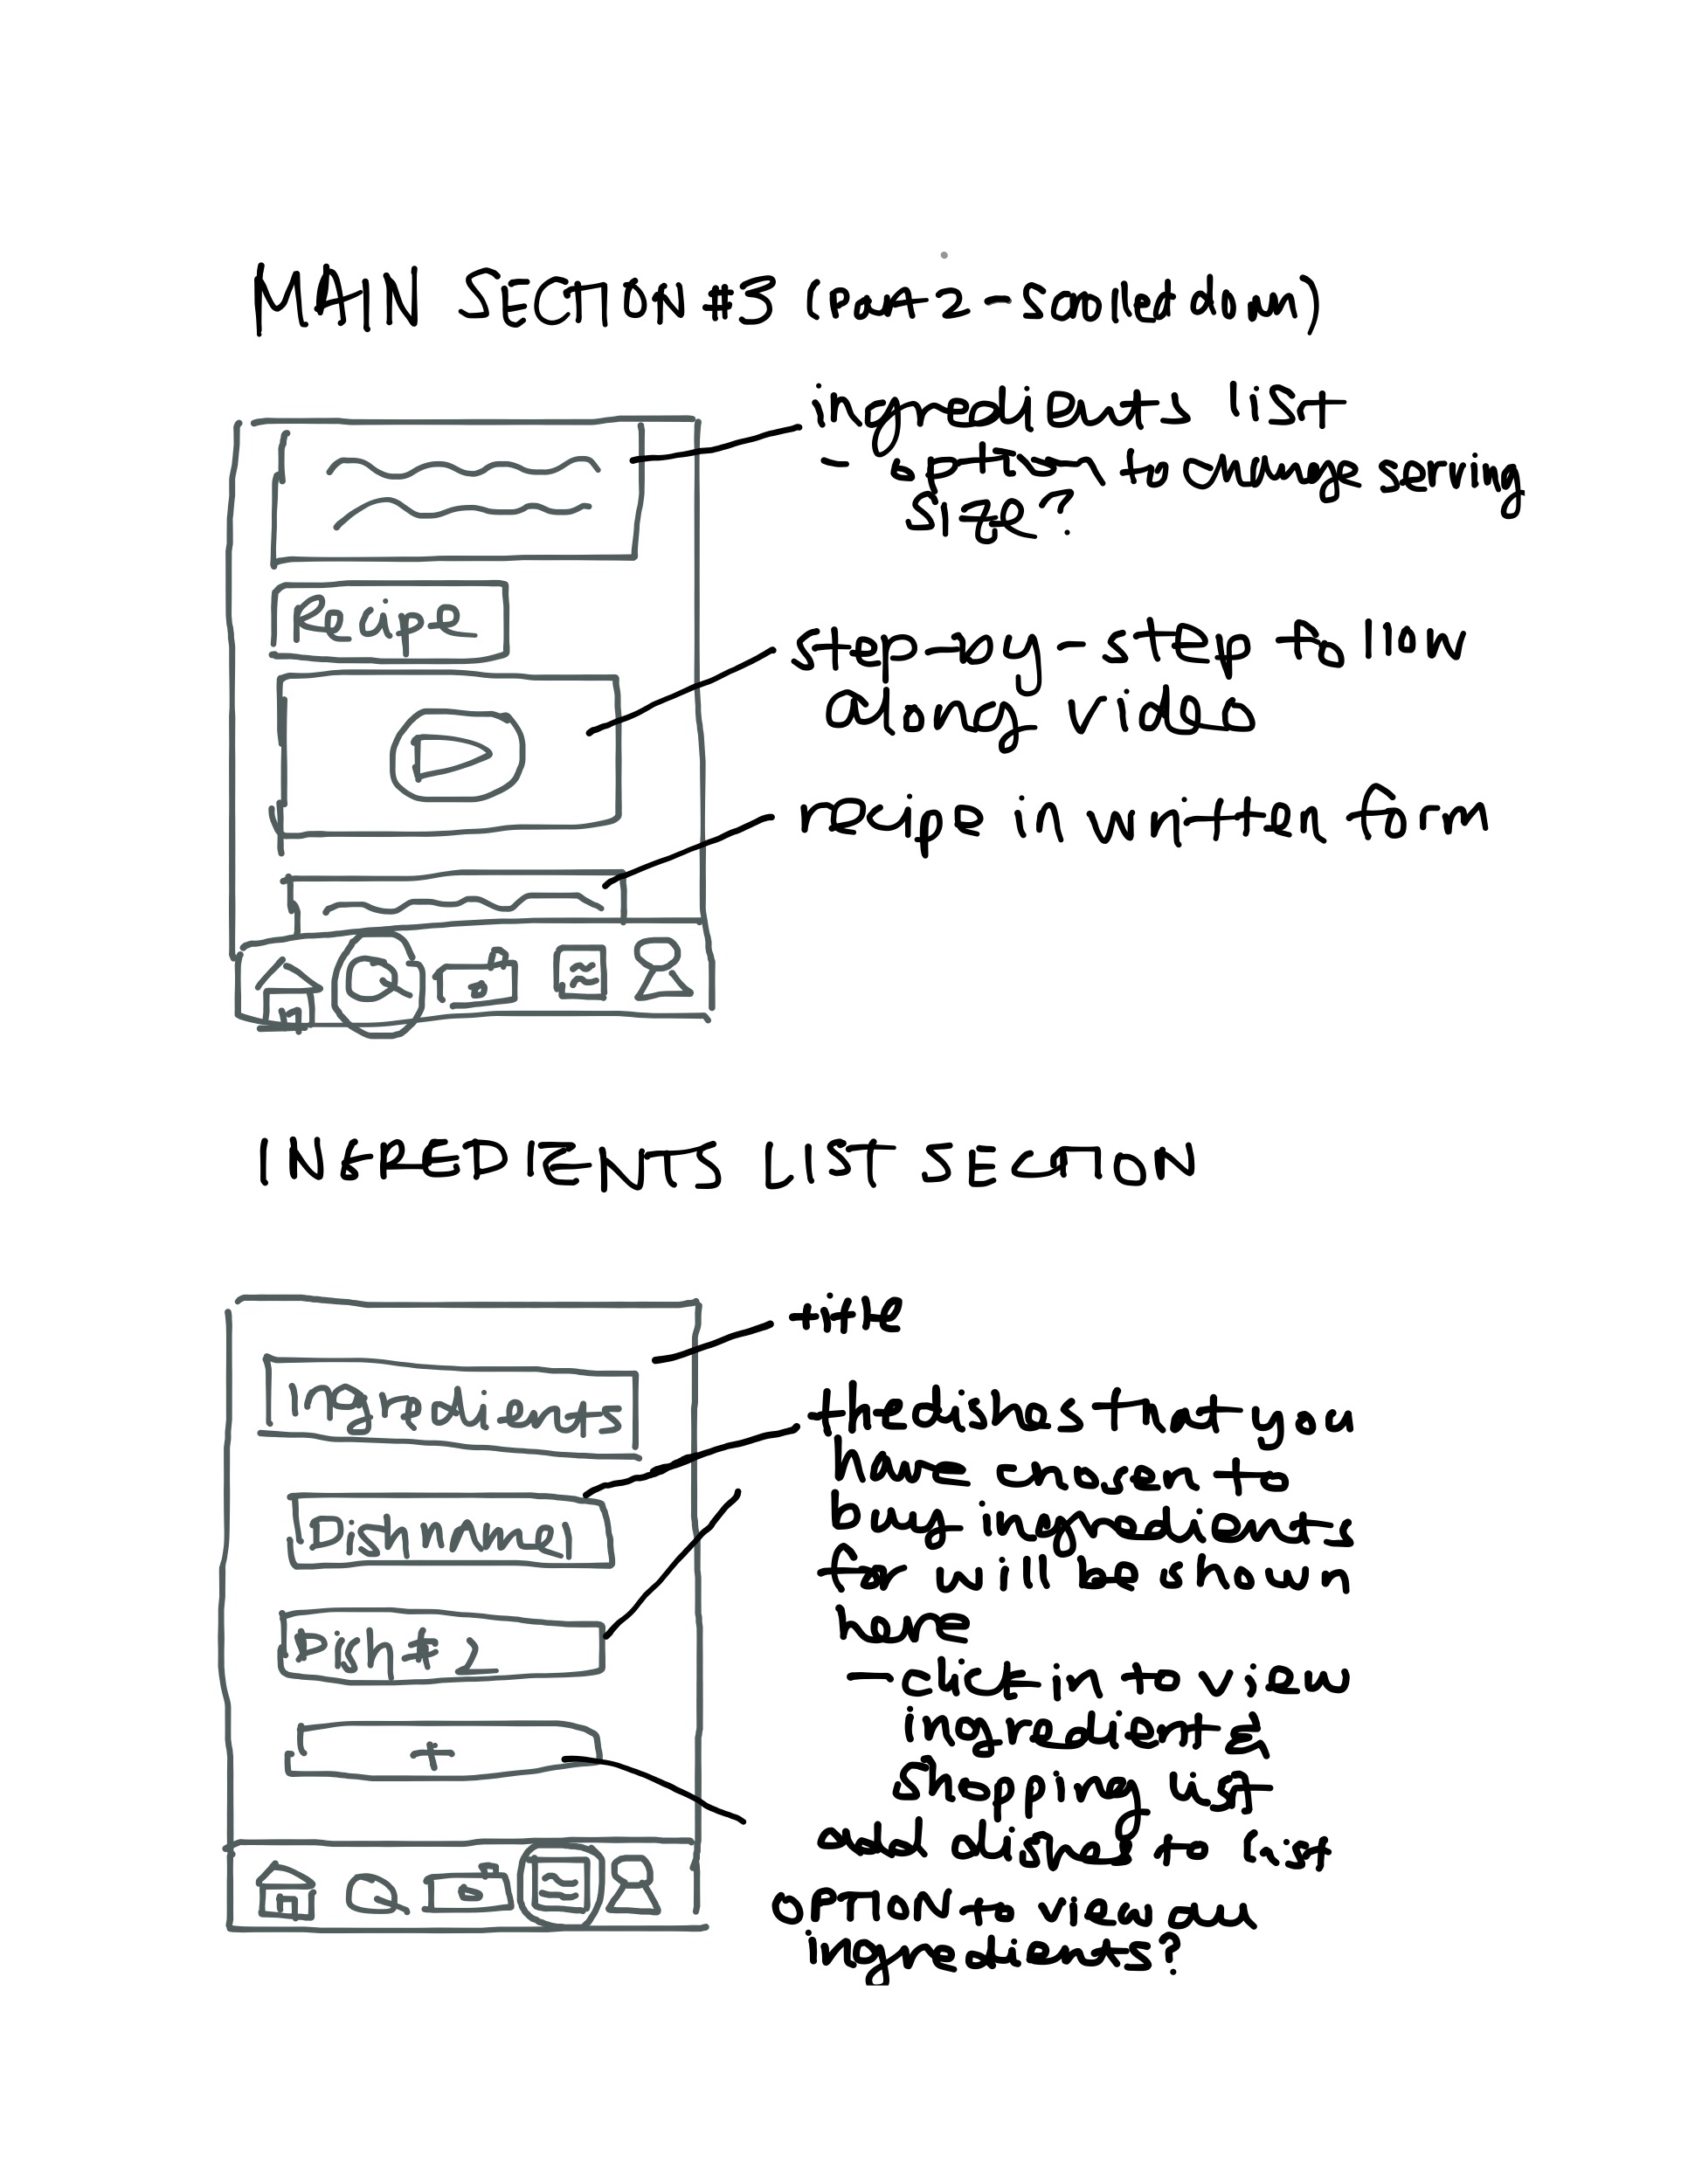 MAIN SECTION #3 (part 2 - scrolled down)
ingredients list
- option to change serving
size?
Recipe
step-by-step follow
along video
recipe in written form
INGREDIENTS LIST SECTION
title
Ingredients
the dishes that you
have chosen to
buy ingredients
for will be shown
here
Dish name 1
Dish #2
- click in to view
ingredient &
shopping list
+
add dishes to list
OPTION to view all
ingredients?